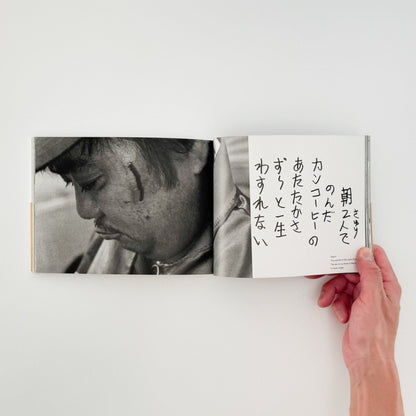 さゆり
朝2人で
のんだ
カンコーヒーの
あたたかさ
ずっと一生
わすれない